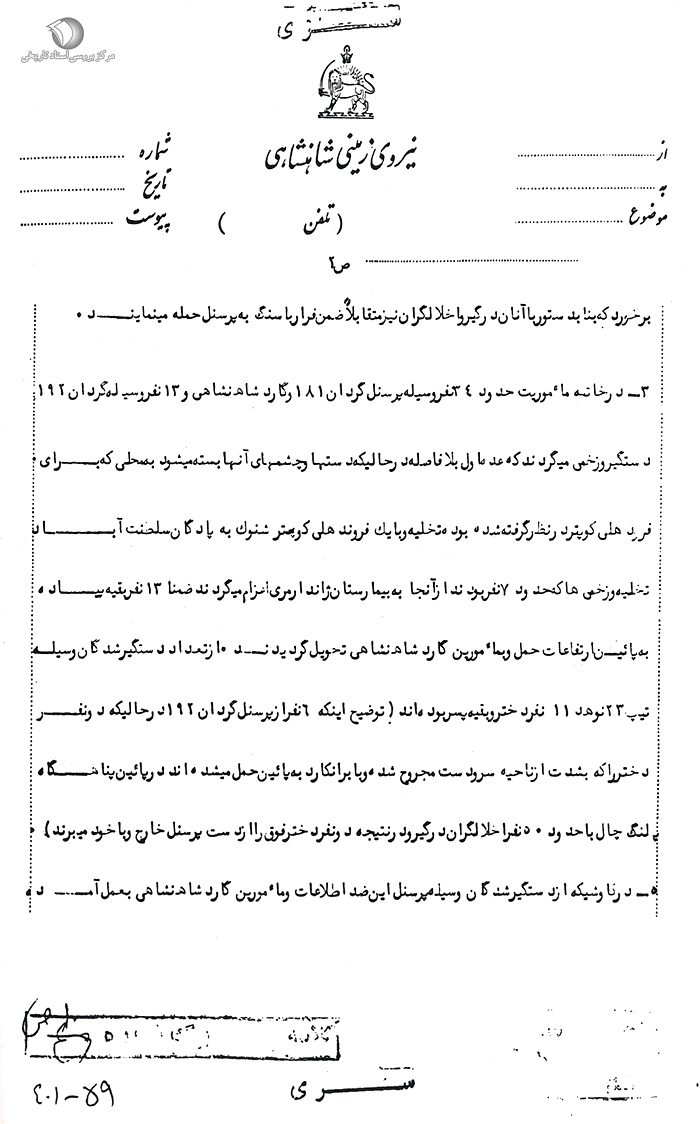 سری
مرکز بررسی اسناد تاریخی
نیروی زمینی شاهنشاهی
از
به
موضوع
شماره
تاریخ
پیوست
(تلفن )
ص۲
برخورد که بنا بدستور با آنان درگیر و اخلالگران نیز متقابلاً ضمن فرار با سنگ به پرسنل حمله مینمایند ۰
۳ـ در خاتمه مأموریت حدود ۳۴ نفر وسیله پرسنل گردان ۱۸۱ و گارد شاهنشاهی و ۱۳ نفر وسیله گردان ۱۹۲
دستگیر و زخمی میگردند که عده اول بلافاصله در حالیکه دستها و چشمهای آنها بسته میشود به محلی که برای
فرود هلی کوپتر در نظر گرفته شده بوده تخلیه و با یک فروند هلی کوپتر شنوک به پادگان سلطنت آباد
تخلیه و زخمی ها که حدود ۷ نفر بودند از آنجا به بیمارستان ژاندارمری اعزام میگردند ضمنا ۱۳ نفر بقیه پیاده
به پائین ارتفاعات حمل و بمأمورین گارد شاهنشاهی تحویل گردیدند ۰ از تعداد دستگیرشدگان وسیله
تیپ ۲۳ نوهد ۱۱ نفر دختر و بقیه پسر بوده اند (توضیح اینکه ۶ نفر از پرسنل گردان ۱۹۲ در حالیکه دو نفر
دختر را که بشدت از ناحیه سر و دست مجروح شده و با برانکارد به پائین حمل میشده اند در پائین پناهگاه
پلنگ چال با حدود ۵۰ نفر اخلالگران درگیر و در نتیجه دو نفر دختر فوق را از دست پرسنل خارج و با خود میبرند) ۰
۵ـ در کاوشیکه از دستگیرشدگان وسیله پرسنل این ضد اطلاعات و مأمورین گارد شاهنشاهی بعمل آمده
سری
۴۰۱-۵۹